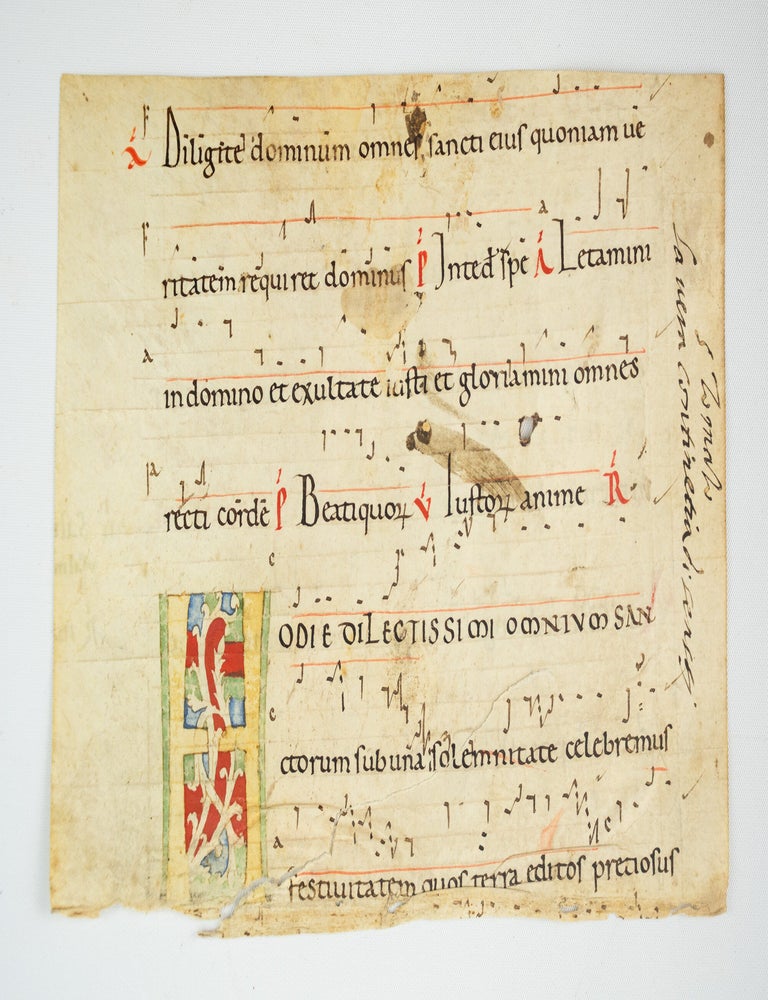 F
A Diligite dominum omnes sancti eius quoniam ue
F a
ritatem requiret dominus P In te dn̄e spe A Letamini
a
in domino et exultate iusti et gloriamini omnes
recti cordē P Beati quoꝝ V Iustoꝝ anime R
c
ODIE DILECTISSIMI OMNIUM SAN
c
ctorum sub una solemnitate celebremus
a
festiuitatem quos terra editos pretiosus